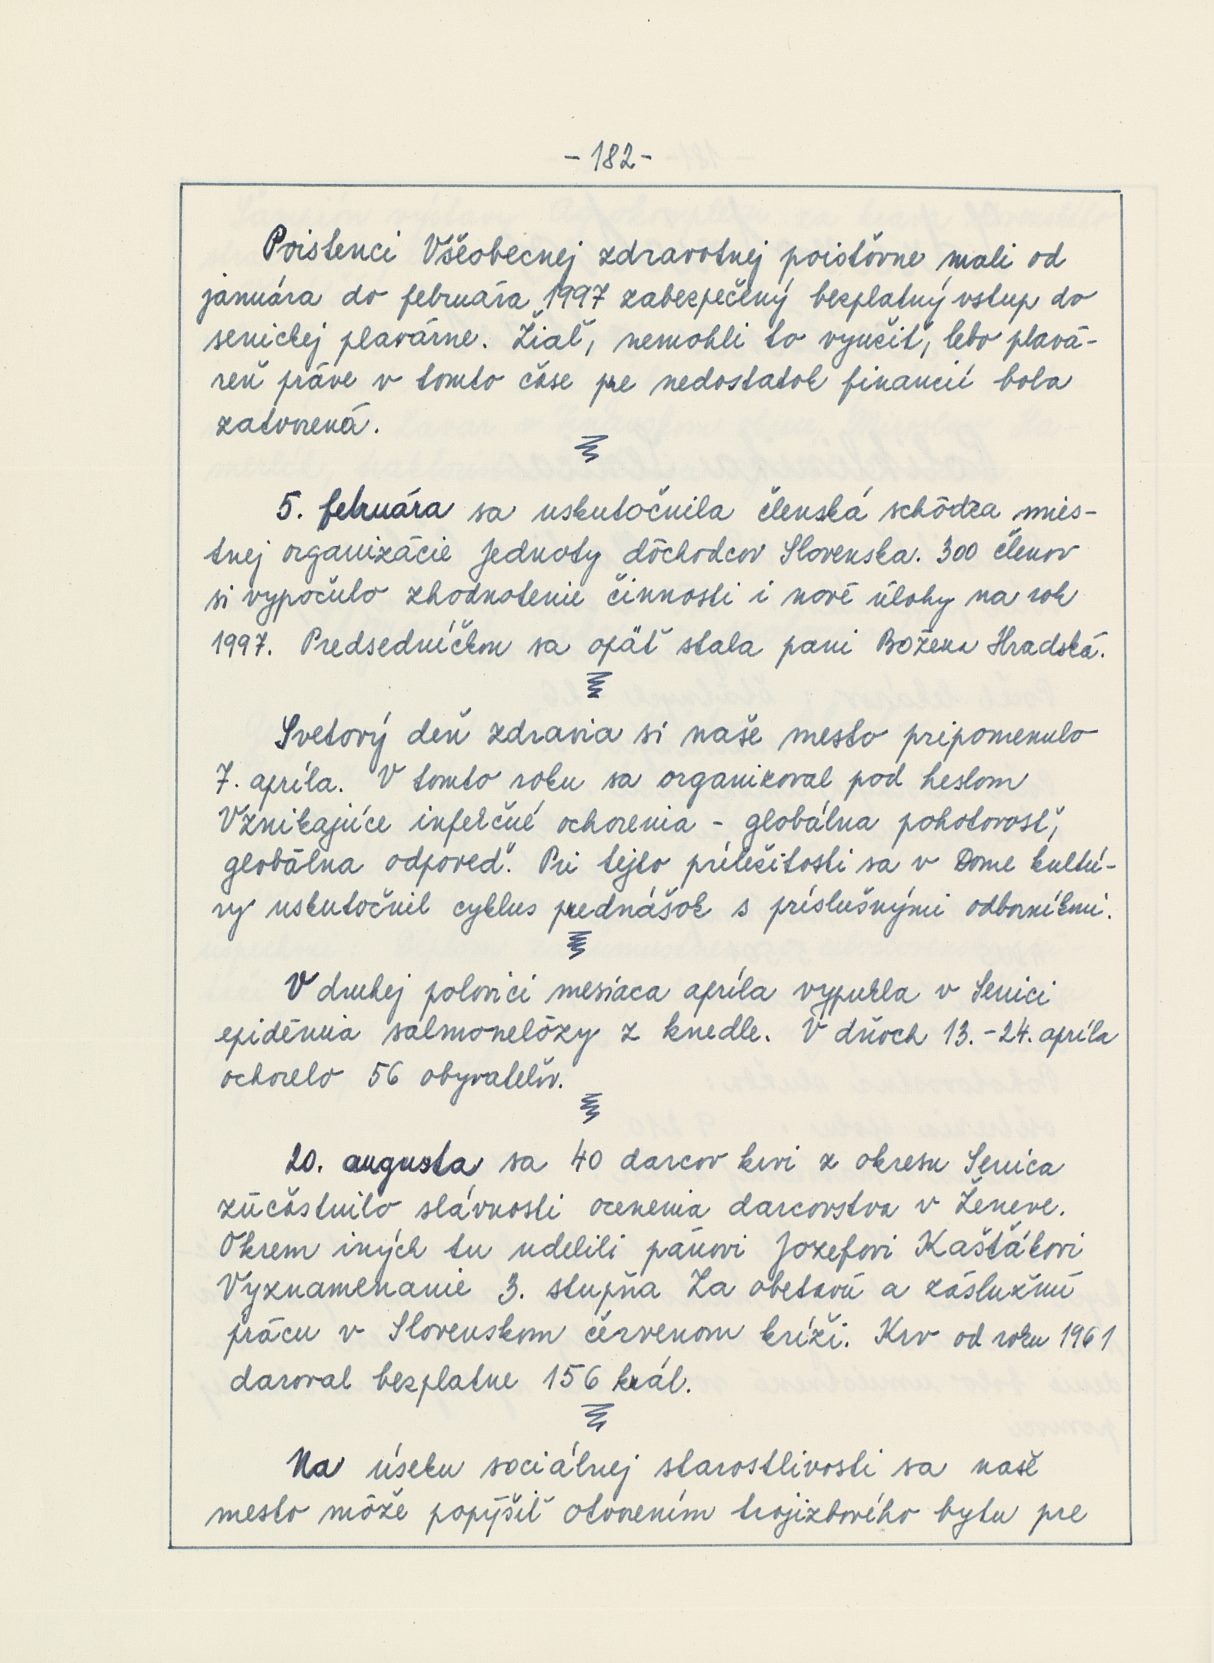 - 182 -
Poistenci Všeobecnej zdravotnej poisťovne mali od
januára do februára 1997 zabezpečený bezplatný vstup do
senickej plavárne. Žiaľ, nemohli to využiť, lebo plavá-
reň práve v tomto čase pre nedostatok financií bola
zatvorená.
5. februára sa uskutočnila členská schôdza mies-
tnej organizácie Jednoty dôchodcov Slovenska. 300 členov
si vypočulo zhodnotenie činnosti i nové úlohy na rok
1997. Predsedníčkou sa opäť stala pani Božena Hradská.
Svetový deň zdravia si naše mesto pripomenulo
7. apríla. V tomto roku sa organizoval pod heslom
Vznikajúce infekčné ochorenia - globálna pohotovosť,
globálna odpoveď. Pri tejto príležitosti sa v Dome kultú-
ry uskutočnil cyklus prednášok s príslušnými odborníkmi.
V druhej polovici mesiaca apríla vypukla v Senici
epidémia salmonelózy z knedle. V dňoch 13. - 24. apríla
ochorelo 56 obyvateľov.
20. augusta sa 40 darcov krvi z okresu Senica
zúčastnilo slávnosti ocenenia darcovstva v Ženeve.
Okrem iných tu udelili pánovi Jozefovi Kaštákovi
Vyznamenanie 3. stupňa Za obetavú a záslužnú
prácu v Slovenskom červenom kríži. Krv od roku 1961
daroval bezplatne 156 krát.
Na úseku sociálnej starostlivosti sa naše
mesto môže popýšiť otvorením trojizbového bytu pre